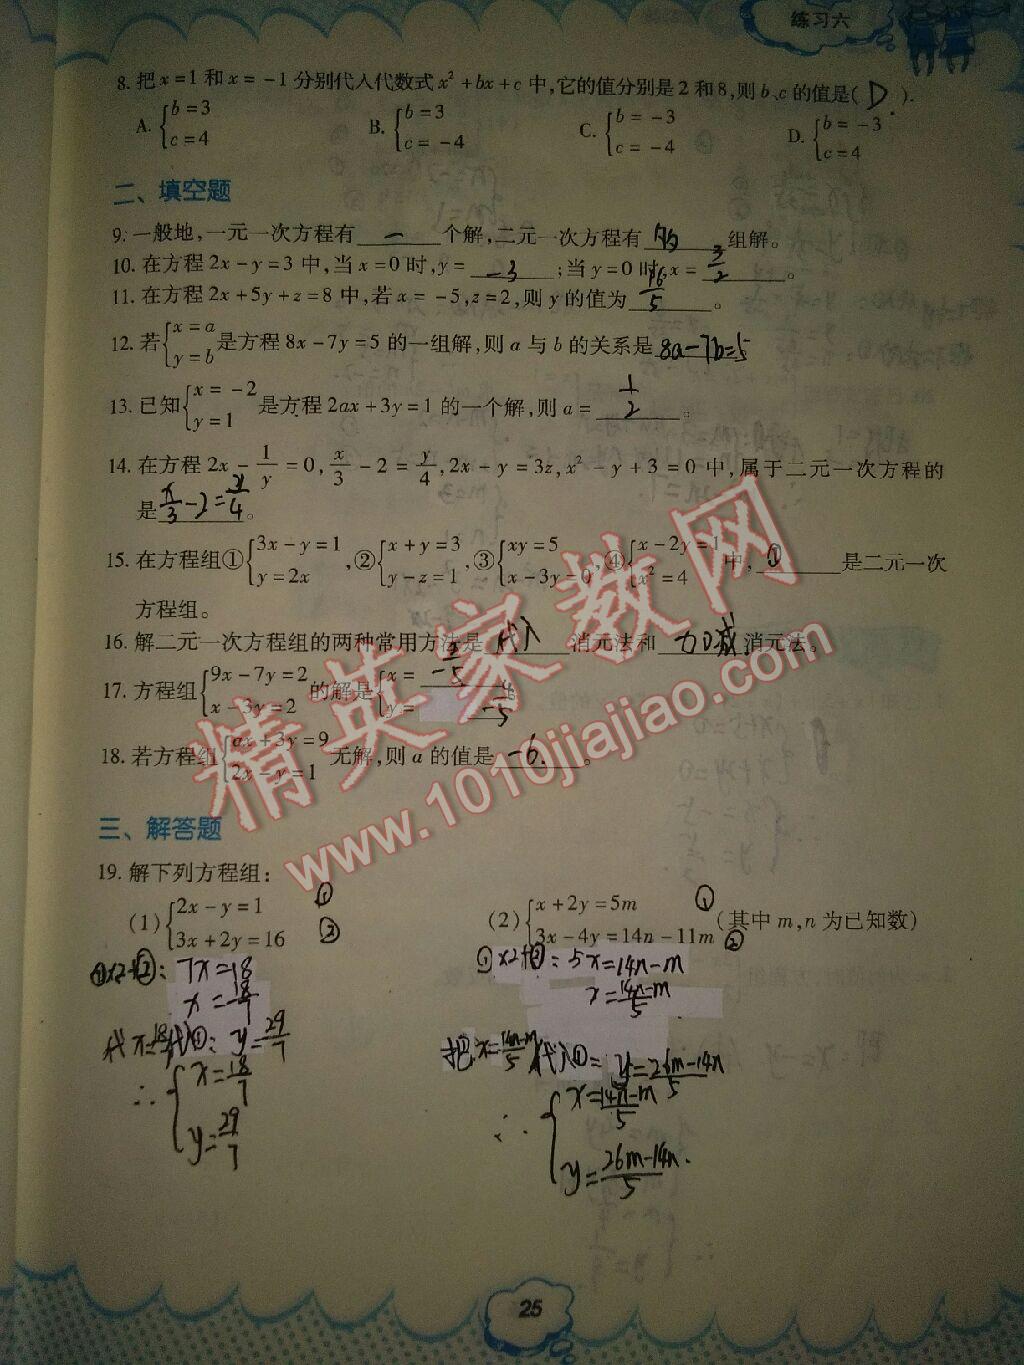 练习六
8. 把x=1和x=-1分别代入代数式x²+bx+c中,它的值分别是2和8,则b、c的值是( D ).
A. {b=3 c=4 B. {b=3 c=-4 C. {b=-3 c=-4 D. {b=-3 c=4
二、填空题
9. 一般地,一元一次方程有 一 个解,二元一次方程有 组解。
10. 在方程2x-y=3中,当x=0时,y= -3 ;当y=0时,x= 3/2 。
11. 在方程2x+5y+z=8中,若x=-5,z=2,则y的值为 16/5 。
12. 若{x=a y=b 是方程8x-7y=5的一组解,则a与b的关系是 8a-7b=5
13. 已知{x=-2 y=1 是方程2ax+3y=1的一个解,则a= 1/2 。
14. 在方程2x-1/y=0,x/3-2=y/4,2x+y=3z,x²-y+3=0中,属于二元一次方程的
是 x/3-2=y/4 。
15. 在方程组①{3x-y=1 y=2x ,②{x+y=3 y-z=1 ,③{xy=5 x-3y=0 ,④{x-2y=1 x²=4 中, ① 是二元一次
方程组。
16. 解二元一次方程组的两种常用方法是 代入 消元法和 加减 消元法。
17. 方程组{9x-7y=2 x-3y=2 的解是{x= y=
18. 若方程组{ax+3y=9 2x-y=1 无解,则a的值是 -6. 。
三、解答题
19. 解下列方程组:
(1){2x-y=1 ① 3x+2y=16 ② (2){x+2y=5m ① 3x-4y=14n-11m ② (其中m,n为已知数)
①×2+②: 7x=18 ①×2+②: 5x=14n-m
x=18/7 x=14n-m/5
代x=18/7代入①: y=29/7 把x=14n-m/5代入①= y=26m-14n/5
∴{x=18/7 y=29/7 ∴{x=14n-m/5 y=26m-14n/5.
精英家教网
www.1010jiajiao.com
25